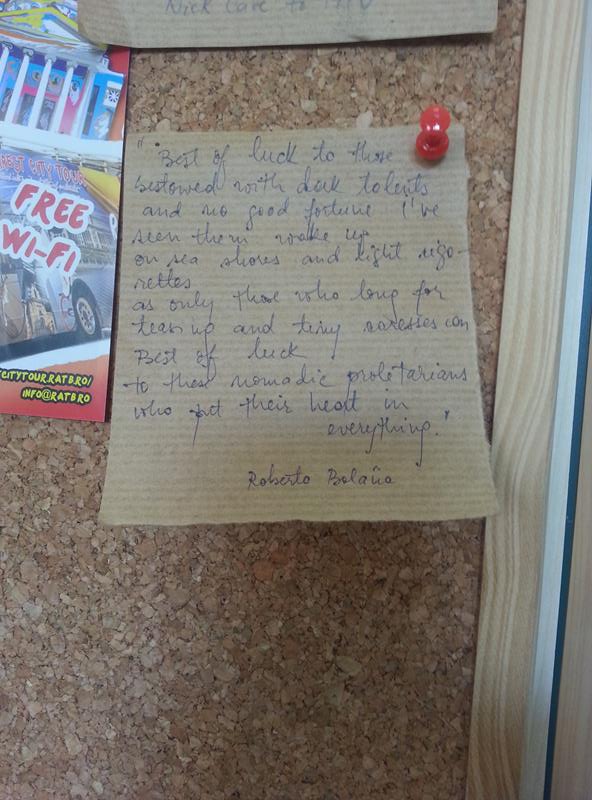 Nick Cave to MTV
CITY TOUR
FREE
WI-FI
CITYTOUR.RATB.RO/
INFO@RATB.RO
"Best of luck to those
bestowed with dark talents
and no good fortune I've
seen them wake up
on sea shores and light ciga-
rettes
as only those who long for
teasing and tiny caresses can
Best of luck
to these nomadic proletarians
who put their heart in
everything."
Roberto Bolaño